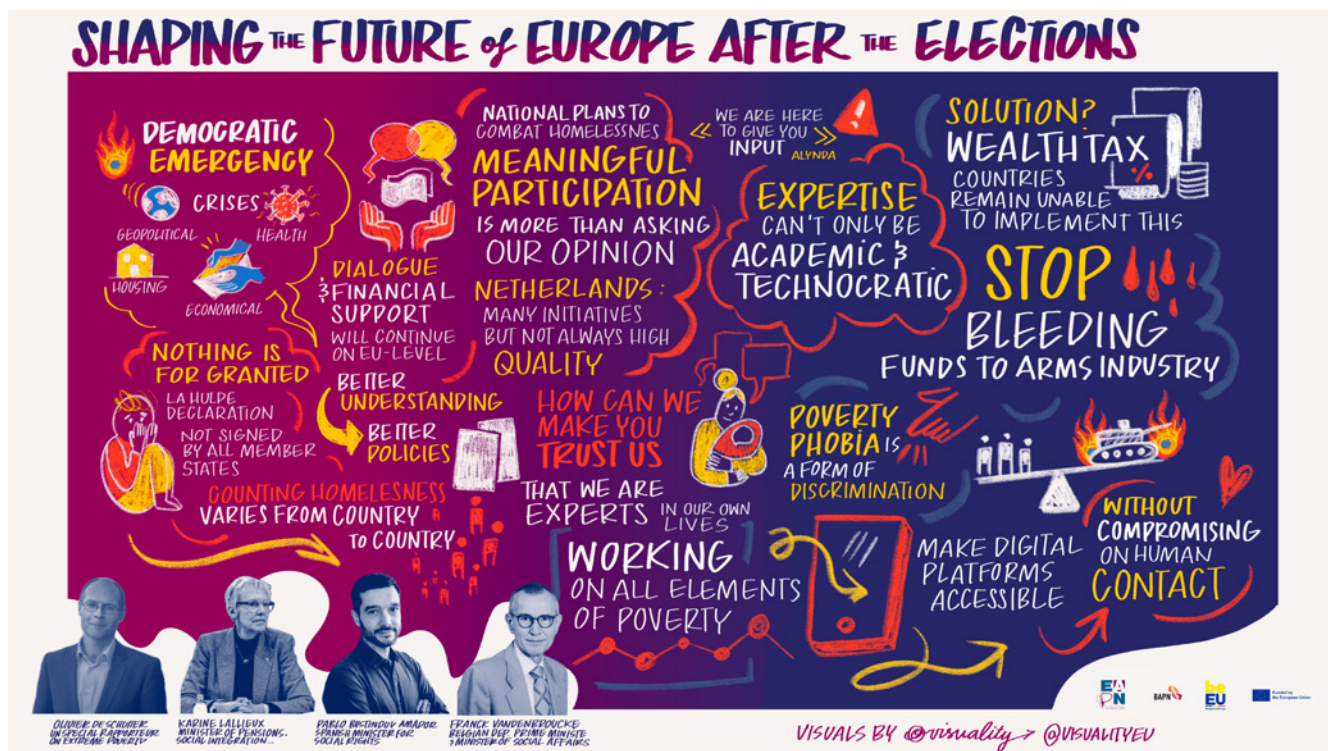 SHAPING THE FUTURE of EUROPE AFTER THE ELECTIONS
DEMOCRATIC
EMERGENCY
CRISES
GEOPOLITICAL
HEALTH
HOUSING
ECONOMICAL
NOTHING IS
FOR GRANTED
LA HULPE
DECLARATION
NOT SIGNED
BY ALL MEMBER
STATES
COUNTING HOMELESNESS
VARIES FROM COUNTRY
TO COUNTRY
DIALOGUE
& FINANCIAL
SUPPORT
WILL CONTINUE
ON EU-LEVEL
BETTER
UNDERSTANDING
BETTER
POLICIES
NATIONAL PLANS TO
COMBAT HOMELESSNES
MEANINGFUL
PARTICIPATION
IS MORE THAN ASKING
OUR OPINION
NETHERLANDS:
MANY INITIATIVES
BUT NOT ALWAYS HIGH
QUALITY
HOW CAN WE
MAKE YOU
TRUST US
THAT WE ARE
EXPERTS IN OUR OWN
LIVES
WORKING
ON ALL ELEMENTS
OF POVERTY
« WE ARE HERE
TO GIVE YOU
INPUT »
ALYNDA
EXPERTISE
CAN'T ONLY BE
ACADEMIC &
TECHNOCRATIC
POVERTY
PHOBIA IS
A FORM OF
DISCRIMINATION
SOLUTION?
WEALTH TAX
%
COUNTRIES
REMAIN UNABLE
TO IMPLEMENT THIS
STOP
BLEEDING
FUNDS TO ARMS INDUSTRY
MAKE DIGITAL
PLATFORMS
ACCESSIBLE
WITHOUT
COMPROMISING
ON HUMAN
CONTACT
OLIVIER DE SCHUTTER
UN SPECIAL RAPPORTEUR
ON EXTREME POVERTY
KARINE LALLIEUX
MINISTER OF PENSIONS,
SOCIAL INTEGRATION...
PABLO BUSTINDUY AMADOR
SPANISH MINISTER FOR
SOCIAL RIGHTS
FRANCK VANDENBROUCKE
BELGIAN DEP. PRIME MINISTE
& MINISTER OF SOCIAL AFFAIRS
VISUALS BY @visuality → @VISUALITYEU
EAPN
BAPN
beEU
Funded by
the European Union